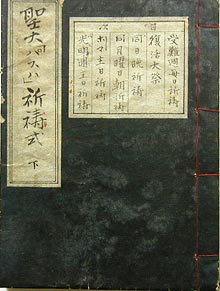 聖大「パスハ」祈祷式 下
目次
受難週毎日祈祷
復活大祭
同日晩祈祷
同月曜日朝祈祷
ホマ主日祈祷
光明週主日祈祷